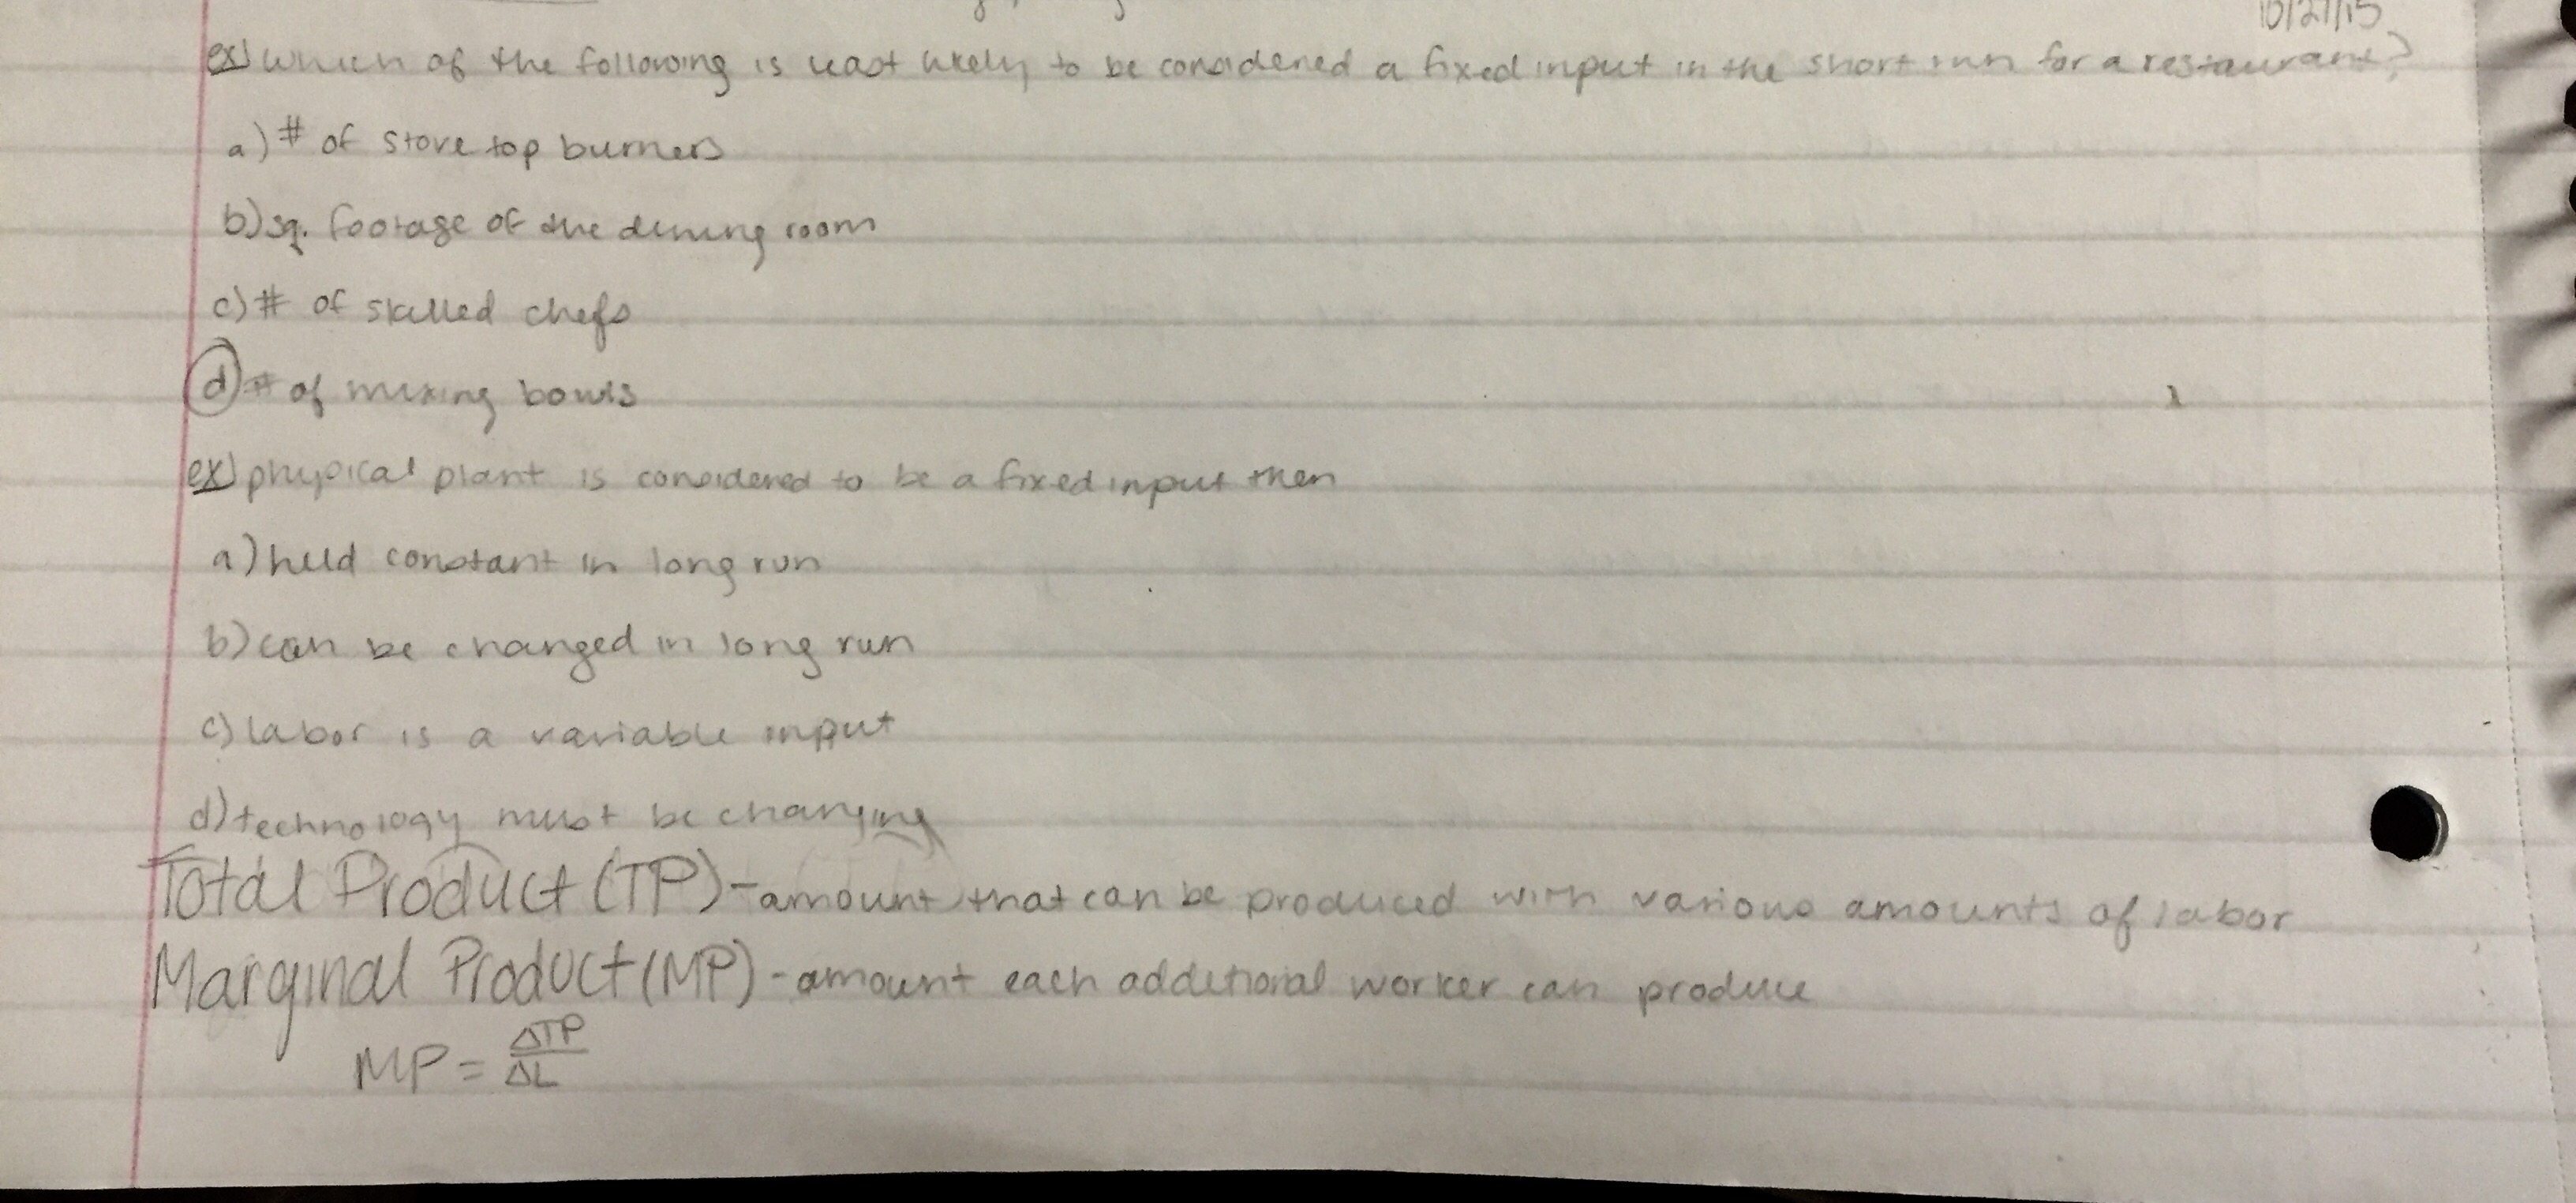 10/27/15
ex) which of the following is least likely to be considered a fixed input in the short run for a restaurant?
a) # of stove top burners
b) sq. footage of the dining room
c) # of skilled chefs
d) # of mixing bowls
ex) physical plant is considered to be a fixed input then
a) held constant in long run
b) can be changed in long run
c) labor is a variable input
d) technology must be changing
Total Product (TP) - amount that can be produced with various amounts of labor
Marginal Product (MP) - amount each additional worker can produce
MP = ΔTP/ΔL